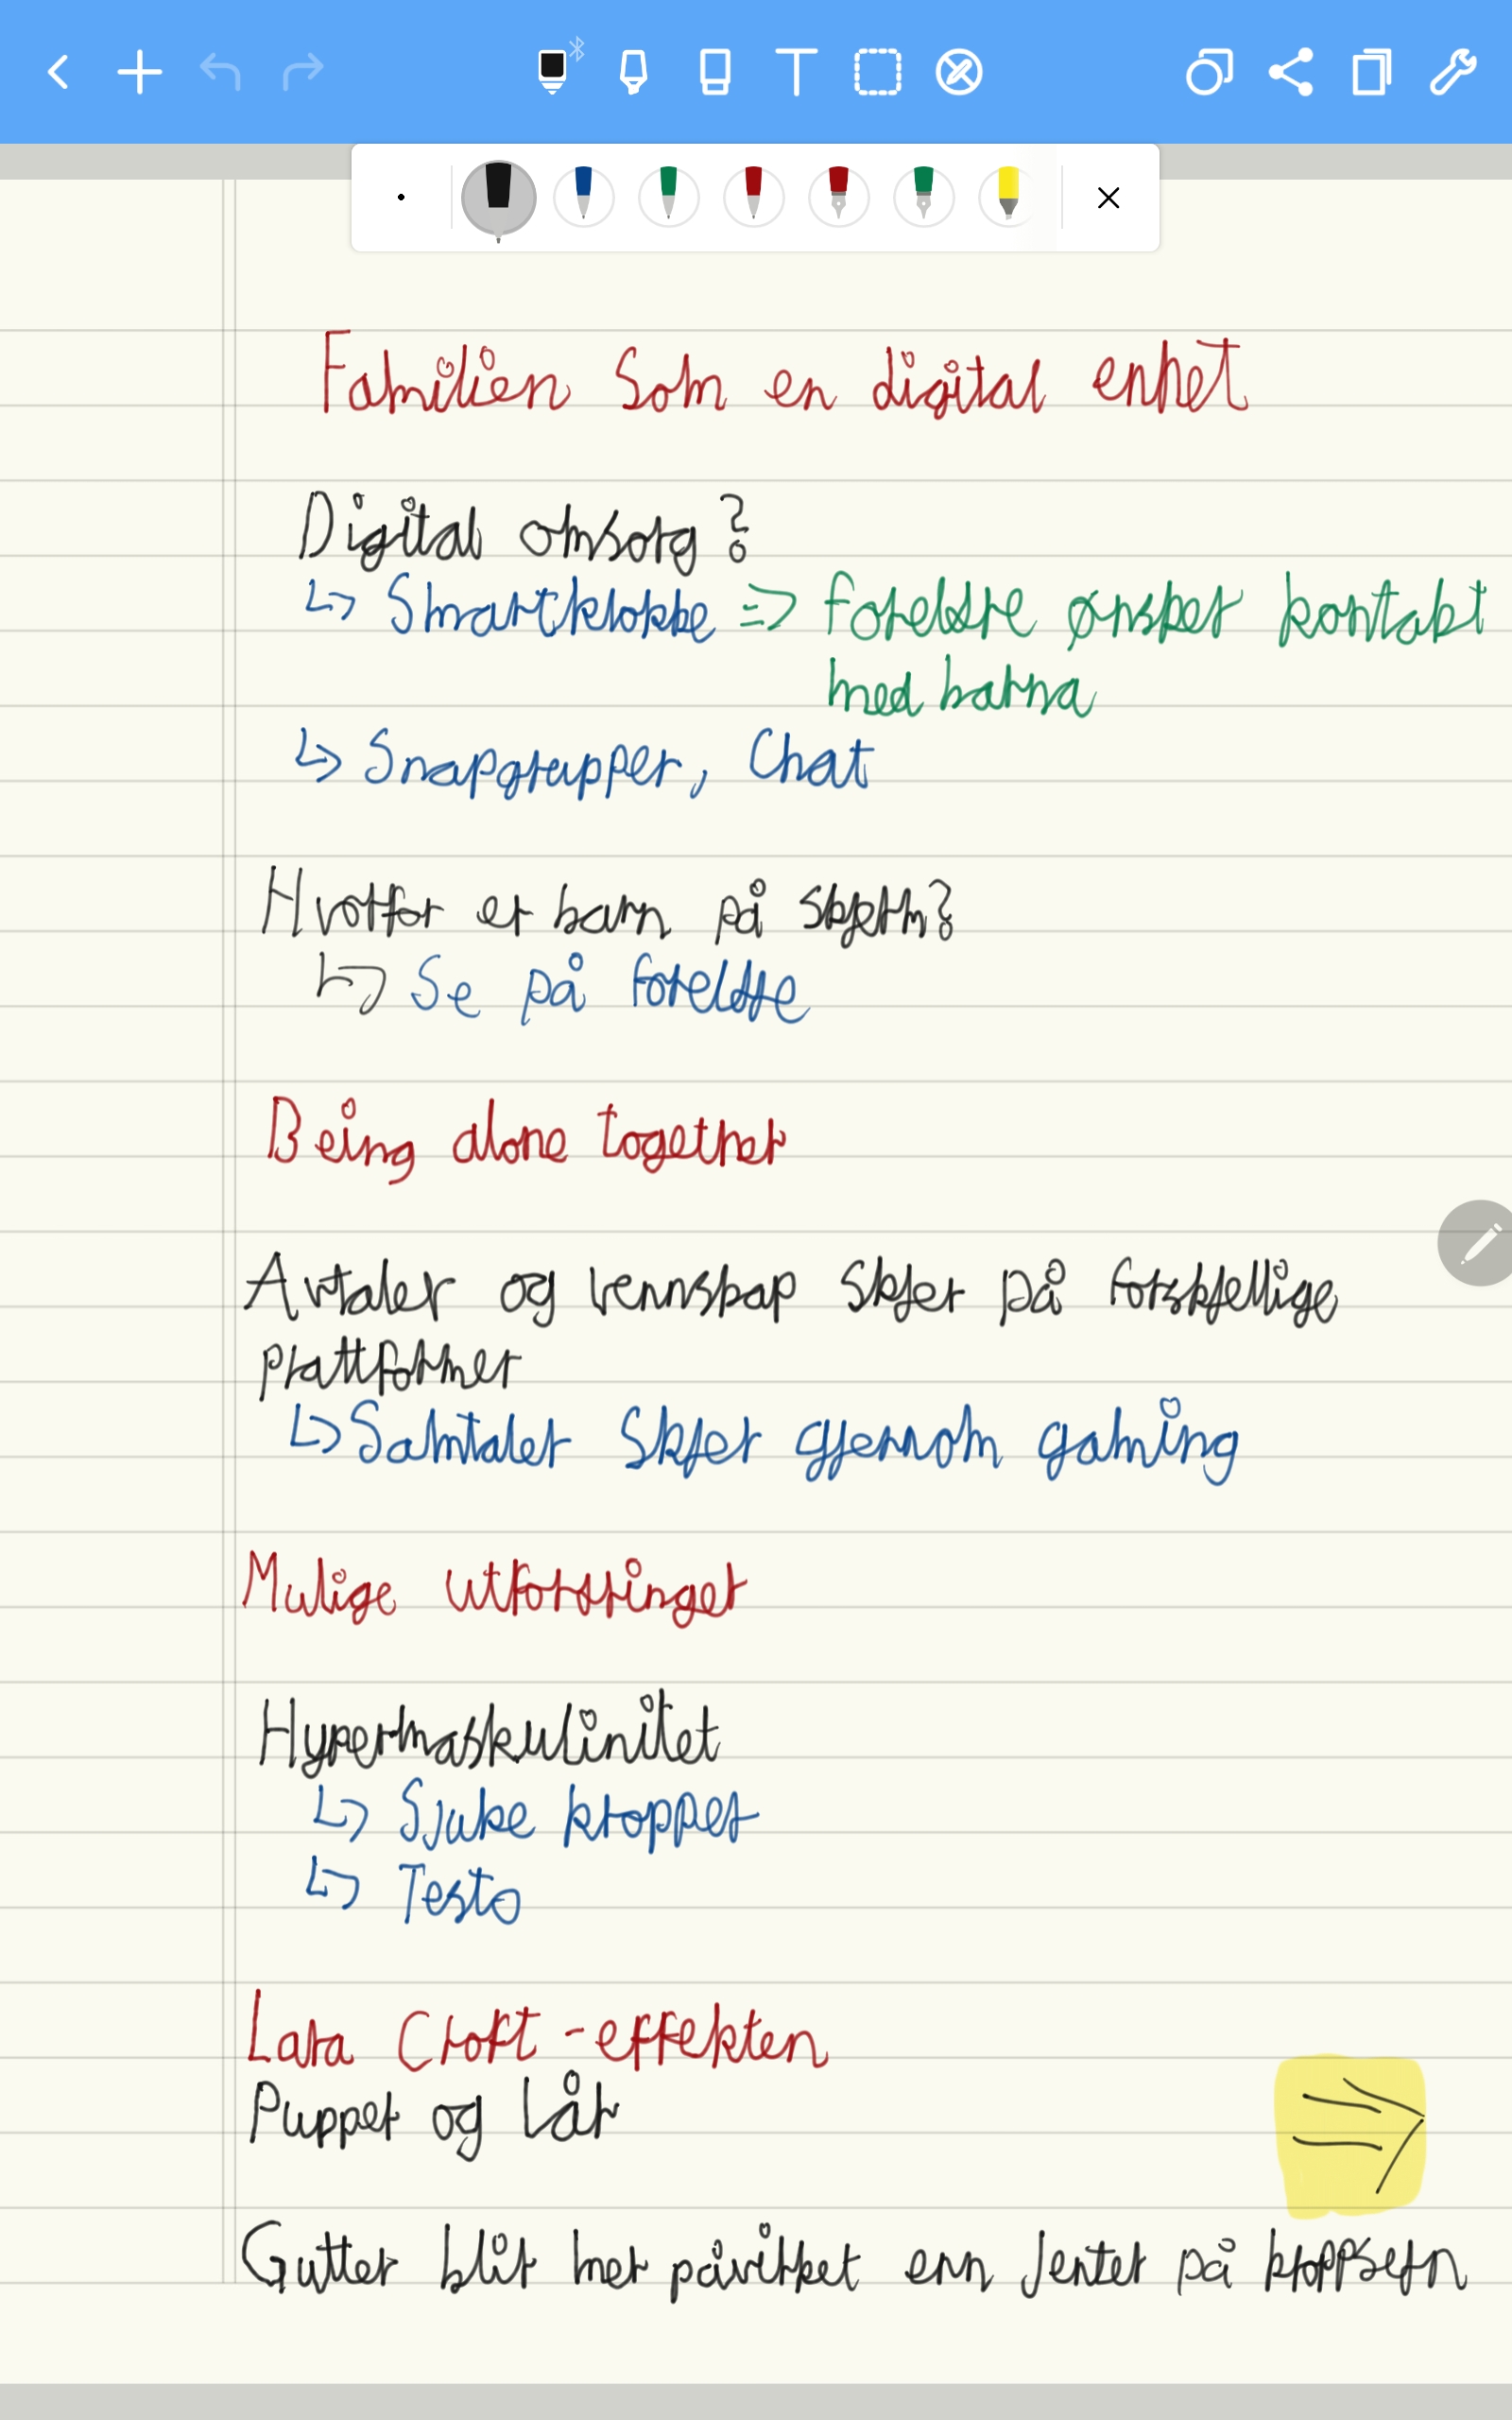 Familien som en digital enhet
Digital omsorg?
↳ Smartklokke => foreldre ønsker kontakt
med barna
↳ Snapgrupper, Chat
Hvorfor er barn på skjerm?
↳ Se på foreldre
Being alone together
Avtaler og vennskap skjer på forskjellige
plattformer
↳ Samtaler skjer gjennom gaming
Mulige utforsringer
Hypermaskulinitet
↳ Sjuke kropper
↳ Testo
Lara Croft-effekten
Pupper og Lår
Gutter blir mer påvirket enn Jenter på kroppsefn